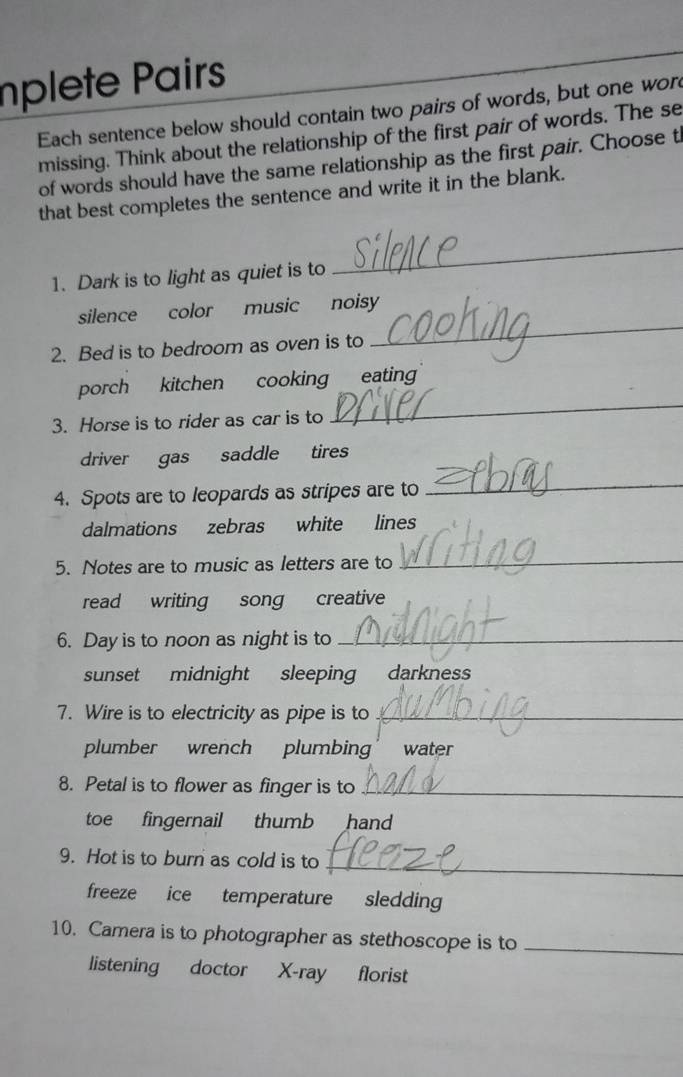 mplete Pairs
Each sentence below should contain two pairs of words, but one word
missing. Think about the relationship of the first pair of words. The se
of words should have the same relationship as the first pair. Choose th
that best completes the sentence and write it in the blank.
1. Dark is to light as quiet is to silence
silence color music noisy
2. Bed is to bedroom as oven is to cooking
porch kitchen cooking eating
3. Horse is to rider as car is to Driver
driver gas saddle tires
4. Spots are to leopards as stripes are to zebras
dalmations zebras white lines
5. Notes are to music as letters are to writing
read writing song creative
6. Day is to noon as night is to Midnight
sunset midnight sleeping darkness
7. Wire is to electricity as pipe is to plumbing
plumber wrench plumbing water
8. Petal is to flower as finger is to hand
toe fingernail thumb hand
9. Hot is to burn as cold is to freeze
freeze ice temperature sledding
10. Camera is to photographer as stethoscope is to
listening doctor X-ray florist